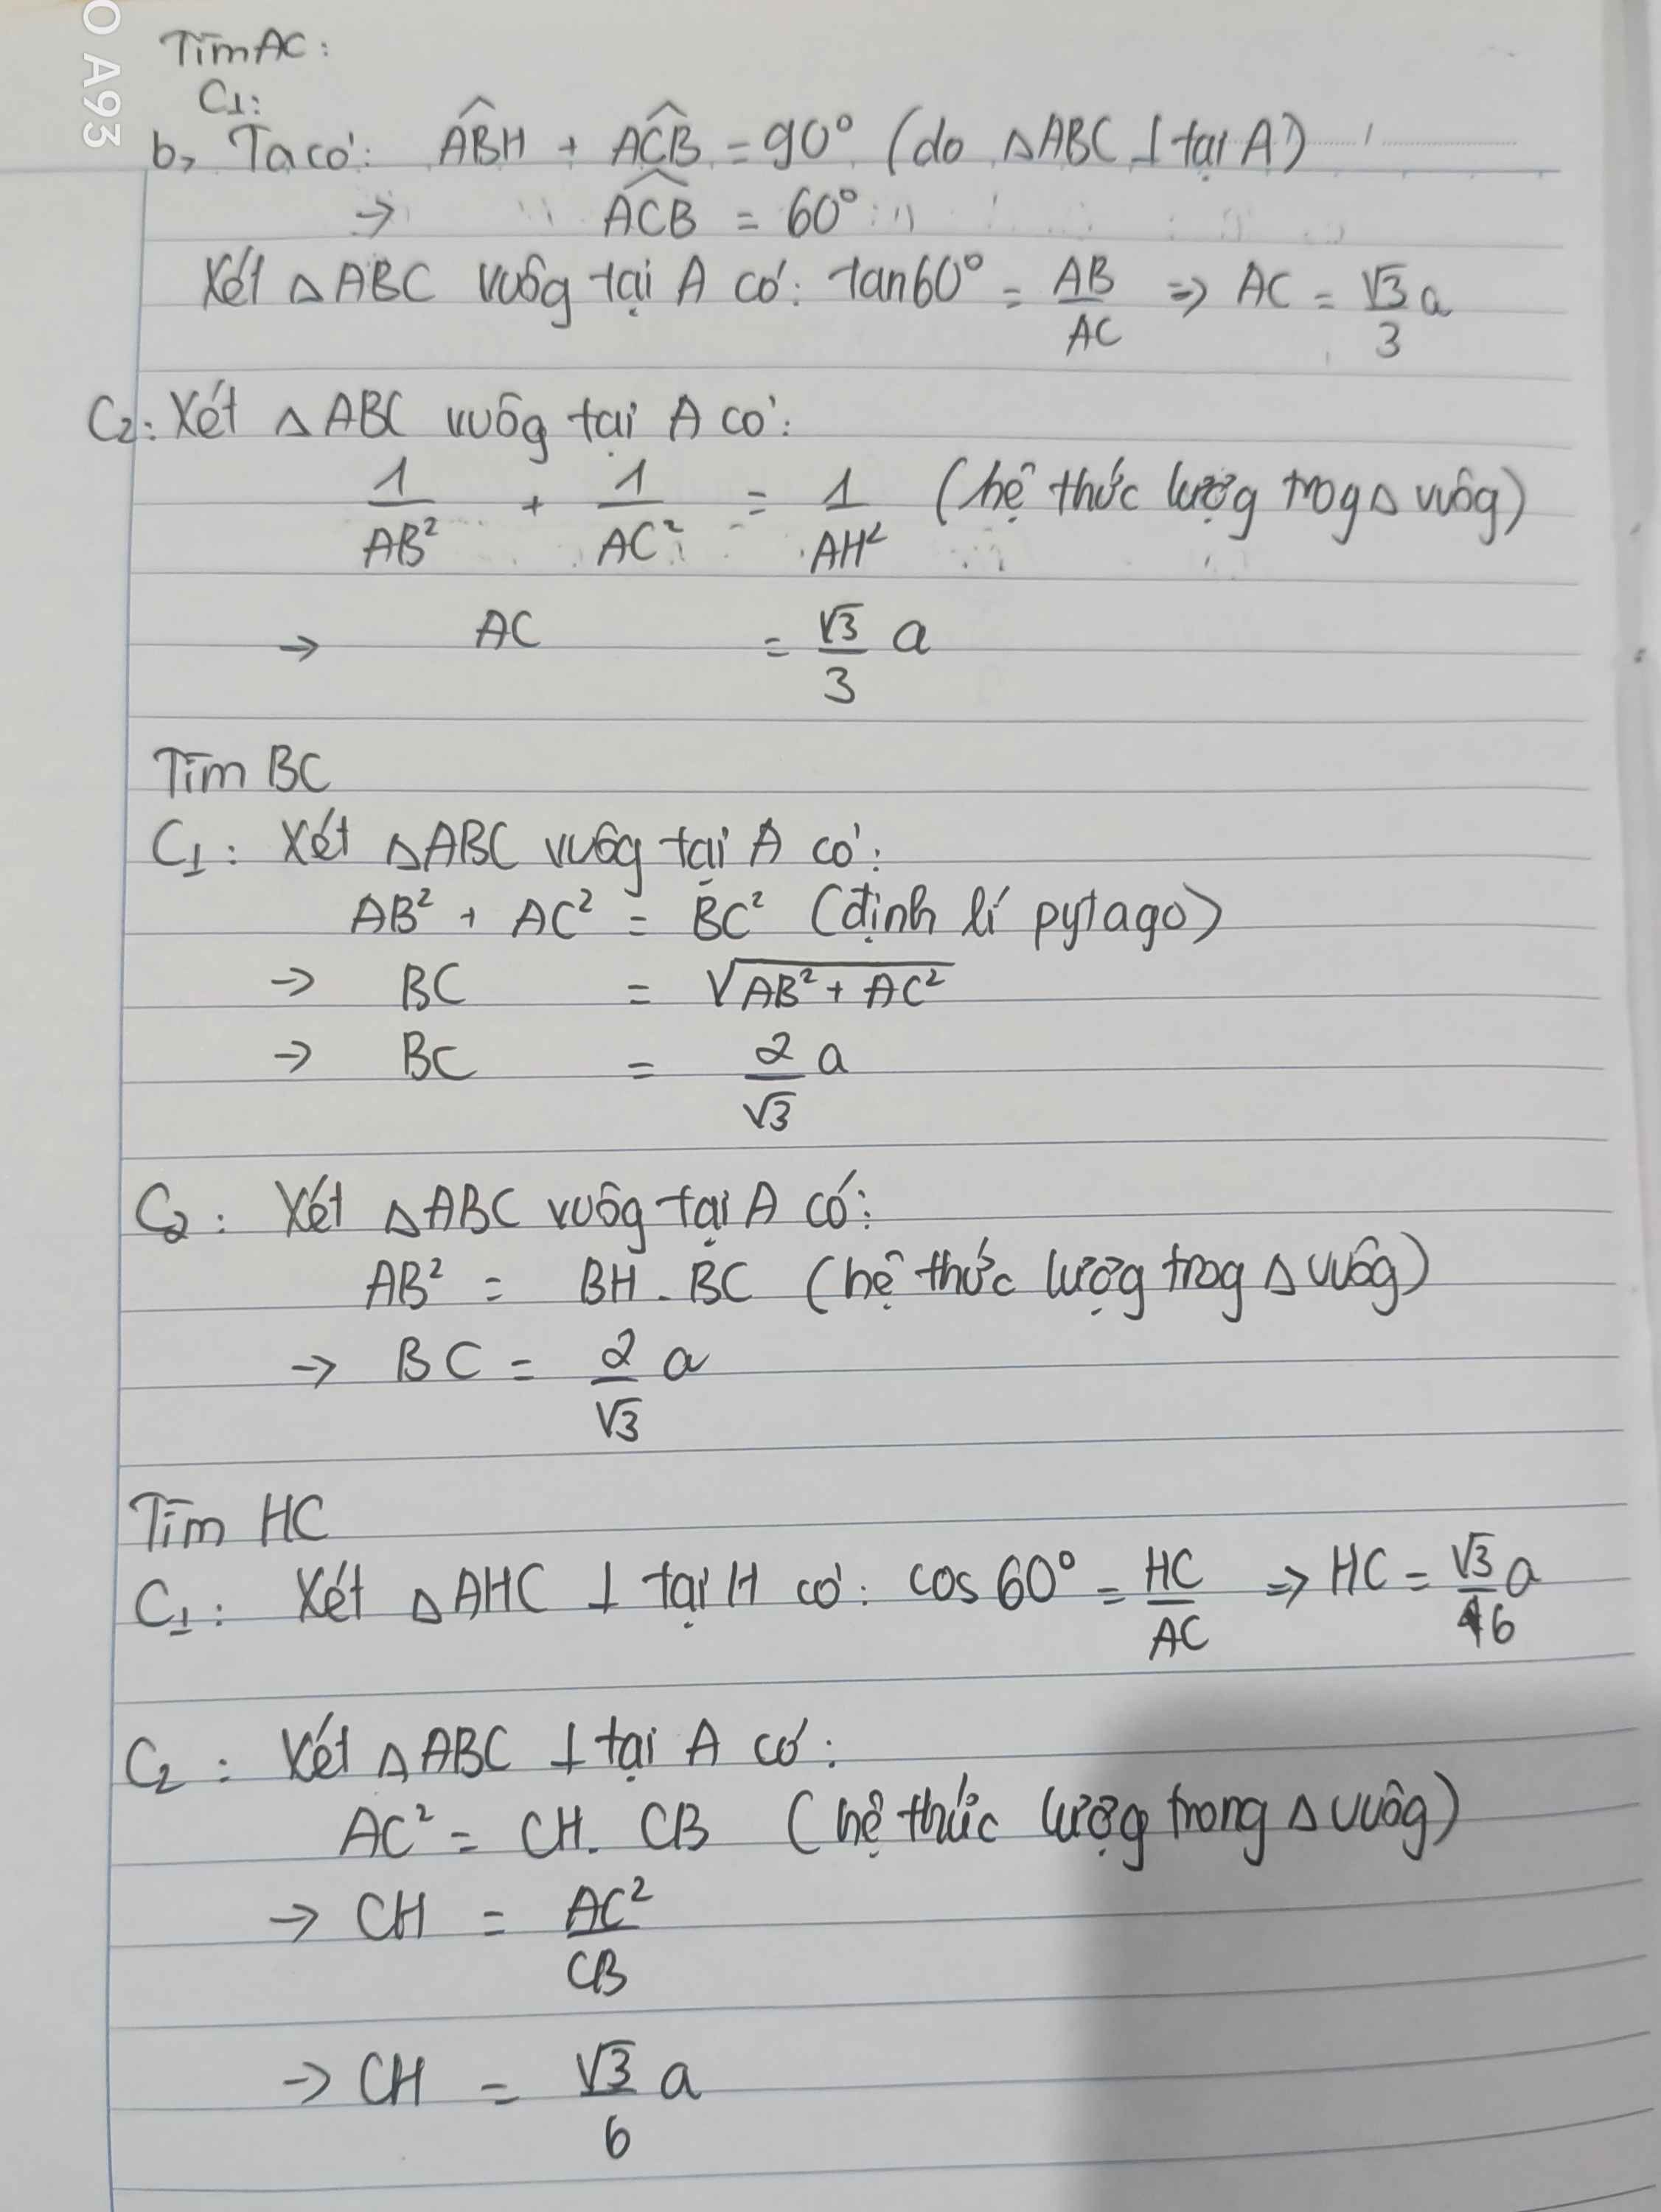 O A93
Tìm AC:
C1:
b, Ta có: ABH + ACB = 90° (do △ABC ⊥ tại A)
→ ACB = 60°
Xét △ABC vuôg tại A có: tan60° = AB/AC ⇒ AC = √3/3 a
C2: Xét △ABC vuôg tại A có:
1/AB² + 1/AC² = 1/AH² (hệ thức lượg trog △ vuôg)
→ AC = √3/3 a
Tìm BC
C1: Xét △ABC vuôg tại A có:
AB² + AC² = BC² (định lí pytago)
→ BC = √(AB² + AC²)
→ BC = 2/√3 a
C2: Xét △ABC vuôg tại A có:
AB² = BH . BC (hệ thức lượg trog △ vuôg)
→ BC = 2/√3 a
Tìm HC
C1: Xét △AHC ⊥ tại H có: cos60° = HC/AC ⇒ HC = √3/6 a
C2: Xét △ABC ⊥ tại A có:
AC² = CH. CB (hệ thức lượg trong △ vuôg)
→ CH = AC²/CB
→ CH = √3/6 a